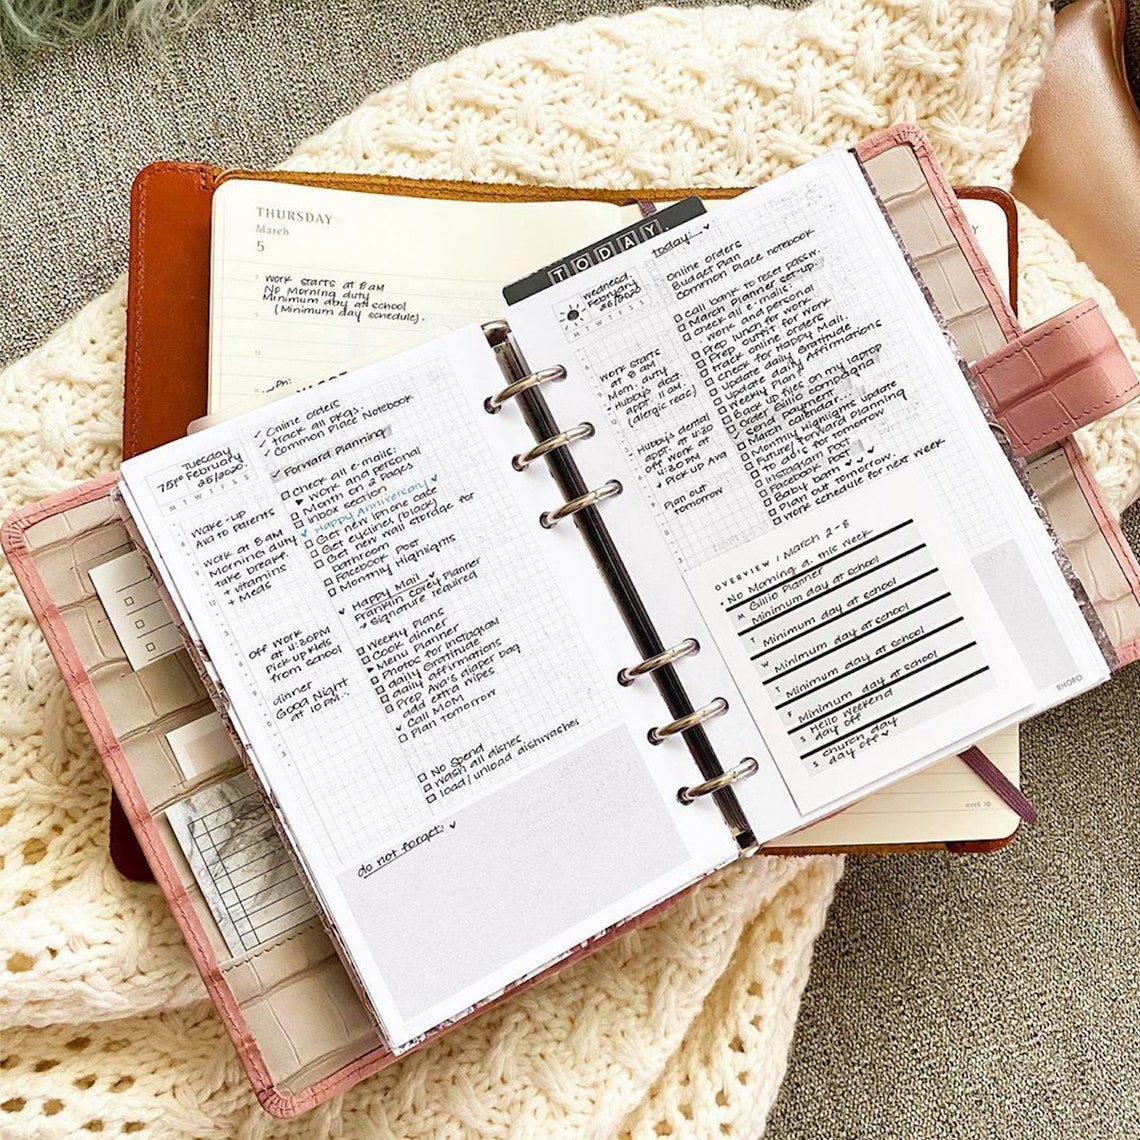 THURSDAY
March
5
Work starts at 8am
No Morning duty
Minimum day at school
(Minimum day schedule).
Tuesday
75F° February
25/2020.
M T W T F S S
Wake-up
Ava to Parents
Work at 8AM
Morning duty
take breakf.
+ vitamins
+ Meds
Off Work
at 4:30PM
Pick up kids
from school
dinner
Good Night
at 10 PM...
✓ Online orders
✓ track all pkgs.
✓ Common Place Notebook
✓ Forward Planning
☐ Check all e-mails:
♥ Work and personal
☐ Month on 2 Pages
☐ Inbox section
✓ Happy Anniversary ♥
☐ Get new iphone case
☐ Get eyelines (black)
☐ Get new wall storage for
bathroom
☐ Facebook Post
☐ Monthly Highlights
✓ Happy Mail
Franklin Covey Planner
→ Signature required
☐ Weekly Plans
☐ Cook dinner
♥ Menu Planner
☐ Photos for Instagram
☐ daily Gratitude
☐ daily affirmations
☐ Prep Ava's diaper bag
add extra wipes
✓ Call MoM
☐ Plan tomorrow
☐ No Spend
☐ Wash all dishes
☐ load/unload dishwasher
do not forget: ✓
TODAY
Wednesd.
February
26/2020
M T W T F S S
Work starts
at 8 AM
Morn. duty
Hubby's doc
appt. 11 am.
(alergic reac)
Hubby's dental
appt. at 4:20
Off work at
4:30PM
♥ Pick up Ava
Plan out
tomorrow
today:
Online orders
Budget Plan
Common Place notebook
☐ Call bank to reset passw.
☐ March Planner set-up.
☐ Check all e-mails:
. work and personal
☐ Prep lunch for work
☐ Prep outfit for wor
☐ track online orders
☐ Check for Happy Mail.
☐ Update daily Gratitude
☐ Update daily Affirmations
☐ Weekly Plan
☐ Back up files on my laptop
☐ Order Gillio Compagna
✓ Send payment
☐ March calendar...
☐ Monthly Highlights update
☐ Future/ Forward Planning
☐ to do's for tomorrow
☐ Instagram Post
☐ Facebook Post
☐ Baby bath ♥ ♥ ♥
☐ Plan out tomorrow.
☐ Work schedule for next week
OVERVIEW / March 2-8
• No Morning d. this week
M Gillio Planner
Minimum day at school
T Minimum day at school
W Minimum day at school
T Minimum day at school
F Minimum day at school
S Hello Weekend
day off
S Church day
day off ♥
RHORO
week 10